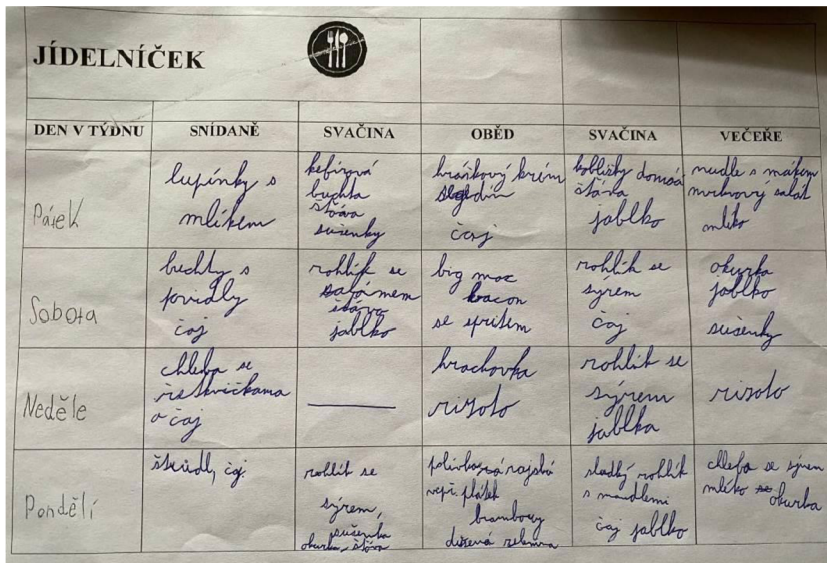 JÍDELNÍČEK
DEN V TÝDNU SNÍDANĚ SVAČINA OBĚD SVAČINA VEČEŘE
Pátek
lupínky s
mlíkem
kefírová
buchta
šťáva
sušenky
hráškový krém
čaj
koblížky domácí
šťáva
jablko
nudle s mákem
mrkvový salát
mlíko
Sobota
buchty s
povidly
čaj
rohlík se
salámem
šťáva
jablko
big mac
bacon
se spritem
rohlík se
syrem
čaj
okurka
jablko
sušenky
Neděle
chleba se
řetkvičkama
a čaj
hrachovka
rizoto
rohlík se
sýrem
jablka
rizoto
Pondělí
štrůdl, čaj
rohlík se
sýrem,
sušenka
okurka, šťáva
polívka rajská
vepř. plátek
brambory
dušená zelenina
sladký rohlík
s mandlemi
čaj jablko
chleba se sýrem
mlíko okurka